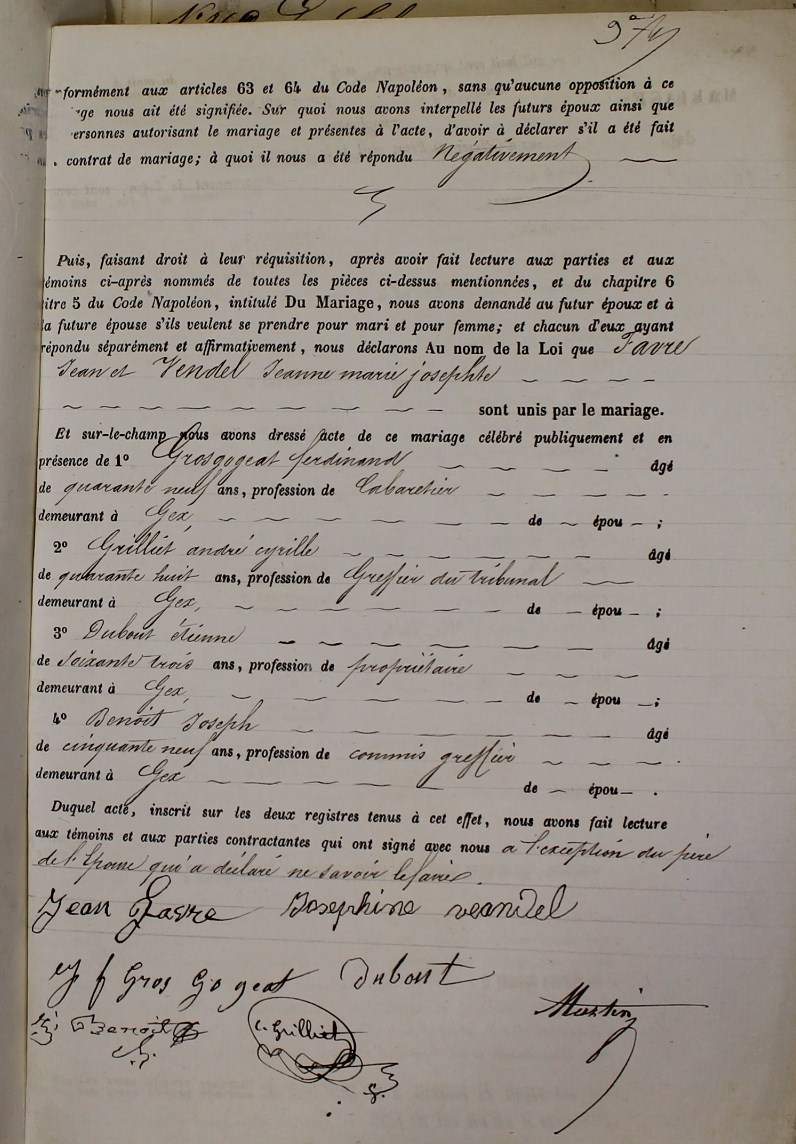 formément aux articles 63 et 64 du Code Napoléon, sans qu'aucune opposition à ce
ge nous ait été signifiée. Sur quoi nous avons interpellé les futurs époux ainsi que
ersonnes autorisant le mariage et présentes à l'acte, d'avoir à déclarer s'il a été fait
contrat de mariage; à quoi il nous a été répondu Négativement
Puis, faisant droit à leur réquisition, après avoir fait lecture aux parties et aux
émoins ci-après nommés de toutes les pièces ci-dessus mentionnées, et du chapitre 6
itre 5 du Code Napoléon, intitulé Du Mariage, nous avons demandé au futur époux et à
la future épouse s'ils veulent se prendre pour mari et pour femme; et chacun d'eux ayant
répondu séparément et affirmativement, nous déclarons Au nom de la Loi que Favre
Jean et Vendel Jeanne marie josephte
sont unis par le mariage.
Et sur-le-champ nous avons dressé acte de ce mariage célébré publiquement et en
présence de 1° Grosgogeat ferdinand âgé
de quarante neuf ans, profession de Cabaretier
demeurant à Gex, de épou ;
2° Grilliet andré cyrille âgé
de quarante huit ans, profession de Greffier du tribunal
demeurant à Gex, de épou ;
3° Dubout étienne âgé
de Soixante trois ans, profession de propriétaire
demeurant à Gex, de épou ;
4° Benoit Joseph âgé
de cinquante neuf ans, profession de commis greffier
demeurant à Gex de épou .
Duquel acte, inscrit sur les deux registres tenus à cet effet, nous avons fait lecture
aux témoins et aux parties contractantes qui ont signé avec nous a l'exception du père
de l'Epouse qui a déclaré ne savoir le faire.
Jean Favre Josephine veandel
f Gros Gogeat Dubout
Martin
Benoit C. Grilliet